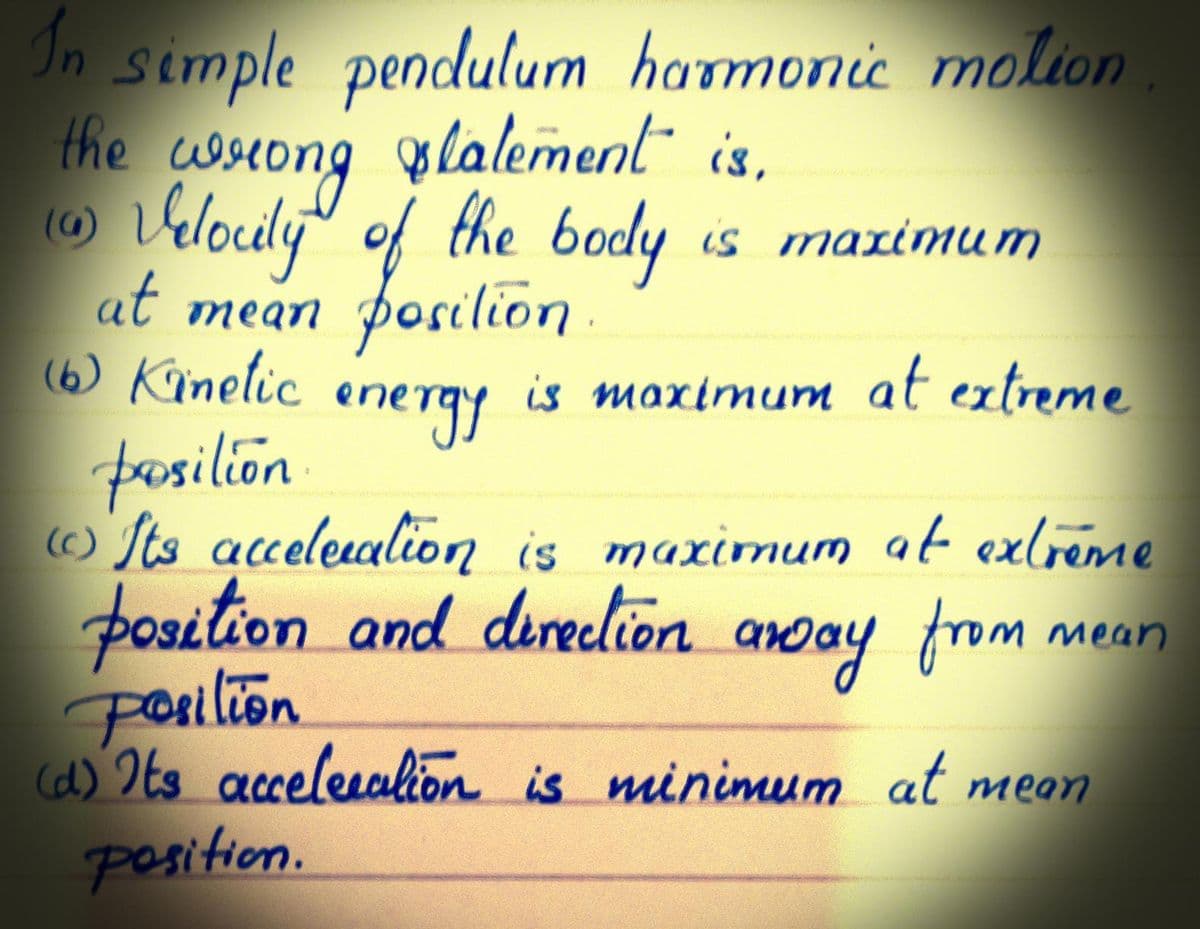 In simple pendulum harmonic motion.
the wrong statement is,
(a) Velocity of the body is maximum
at mean position.
(b) Kinetic energy is maximum at extreme
position.
(c) Its acceleration is maximum at extreme
position and direction away from mean
position
(d) Its acceleration is minimum at mean
position.